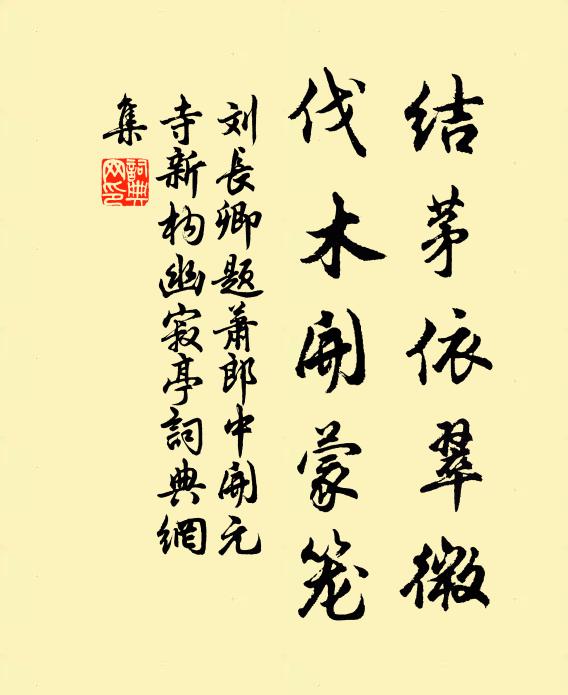 结茅依翠微
伐木开蒙笼
刘长卿题萧郎中开元
寺新构幽寂亭词典网
集
词典网印